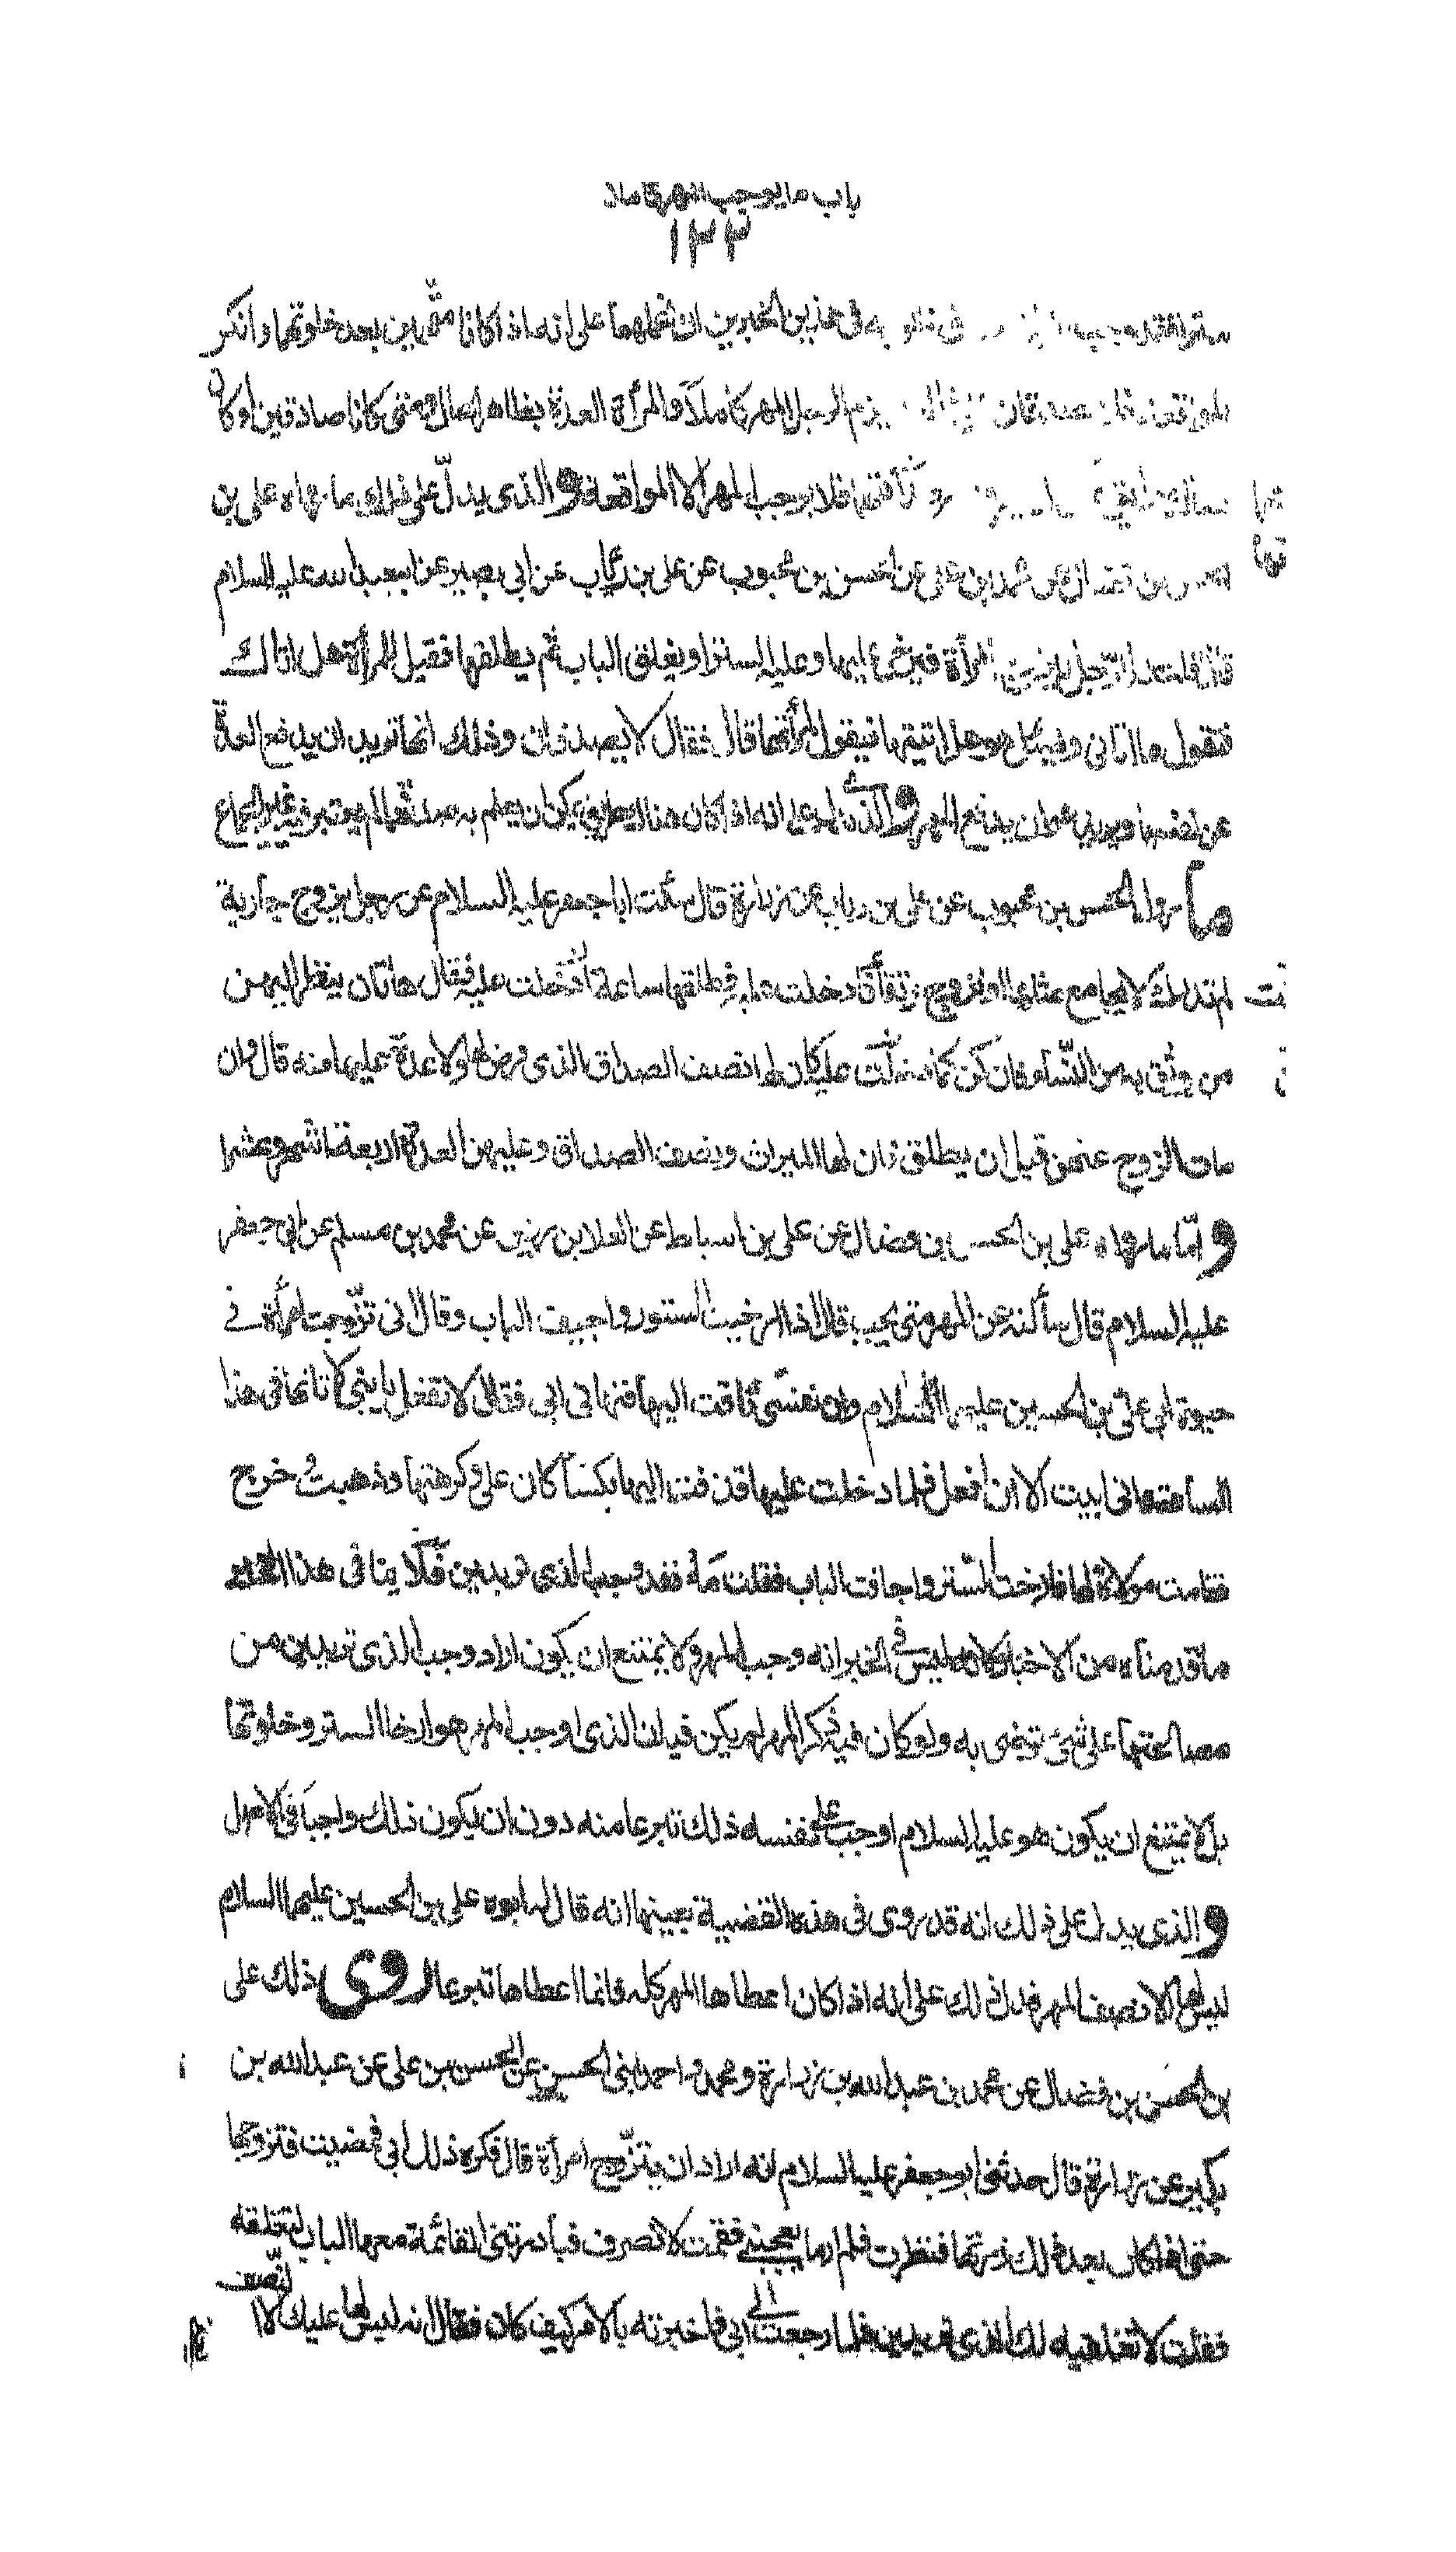 باب ما يوجب المهر كاملا
١٢٢
سترا فقد وجب فالوجه في هذين الخبرين ان نحملهما على انه اذا كانا متهمين بعد خلوتهما وانكر
المواقعة فلا يصدقان يلزم الرجل المهر كاملا والمرأة العدة بظاهر الحال ومتى كانا صادقين او كان
هناك طريق فلا يوجب المهر الا المواقعة والذي يدل على ذلك ما رواه علي بن
الحسن بن فضال عن علي عن الحسن بن محبوب عن علي بن رئاب عن ابي بصير عن ابيعبد الله عليه السلام
قال قلت له الرجل يتزوج المرأة فيرخى عليها وعليه الستر او يغلق الباب ثم يطلقها فقيل للمرأة هل اتاك
فتقول ما اتاني ويسئل هو هل اتيتها فيقول لم آتها قال فقال لا يصدقان وذلك انها تريد ان يدفع العدة
عن نفسها ويريد هو ان يدفع المهر والذي يدل على انه اذا كان هناك طريق يمكن ان يعلم به صدقهما لم يعتبر فيه غير الجماع
ما رواه الحسن بن محبوب عن علي بن رياب عن زرارة قال سئلت ابا جعفر عليه السلام عن رجل يزوج جارية
لم تدرك لا يجامع مثلها او تزوج رتقاء فادخلت عليه فطلقها ساعة ادخلت عليه فقال هاتان ينظر اليهن
من يوثق به من النساء فان كن كما دخلت عليه كان لها نصف الصداق الذي فرض لها ولا عدة عليها منه قال وان
مات الزوج عنهن قبل ان يطلق فان لها الميراث ونصف الصداق وعليهن العدة اربعة اشهر وعشرا
و اما ما رواه علي بن الحسن بن فضال عن علي بن اسباط عن العلا بن رزين عن محمد بن مسلم عن ابي جعفر
عليه السلام قال سألته عن المهر متى يجب قال اذا ارخيت الستور واجيف الباب وقال اني تزوجت امرأة في
حيوة ابي علي بن الحسين عليهما السلام وان نفسي تاقت اليها فنهاني ابي فقال لا تفعل يا بني لا تاتها في هذا
الساعة واني ابيت الا ان افعل فلما دخلت عليها قذفت اليها بكساء كان علي وكرهتها وذهبت لاخرج
فقامت مولاة لها فارخت الستر واجافت الباب فقلت مه فقد وجب الذي تريدين فلا ينافي هذا الخبر
ما قدمناه من الاخبار لانه ليس في الخبر انه وجب المهر ولا يمتنع ان يكون اراد وجب الذي تريدين من
مصالحتها على شيء ترضى به ولو كان فيه ذكر المهر لم يكن فيه ان الذي اوجب المهر هو ارخا الستر وخلوتهما
بل لا يمتنع ان يكون هو عليه السلام اوجب على نفسه ذلك تبرعا منه دون ان يكون ذلك واجبا في الاصل
و الذي يدل على ذلك انه قد روى في هذه القضية بعينها انه قال له ابوه علي بن الحسين عليهما السلام
ليس لها الا نصف المهر فدل ذلك على انه اذا كان اعطاها المهر كله فانما اعطاها تبرعا روى ذلك علي
بن الحسن بن فضال عن محمد بن عبد الله بن زرارة ومحمد واحمد ابني الحسن عن الحسن بن علي عن عبد الله بن
بكير عن زرارة قال حدثني ابو جعفر عليه السلام انه اراد ان يتزوج امرأة قال فكره ذلك ابي فمضيت فتزوجتها
حتى اذا كان بعد ذلك زرتها فنظرت فلم ار ما يعجبني فقمت لانصرف فبادرتني القائمة معها الباب لتغلقه
فقلت لا تغلقيه لك الذي تريدين فلما رجعت الى ابي فاخبرته بالامر كيف كان فقال انه ليس لها عليك الا
النصف